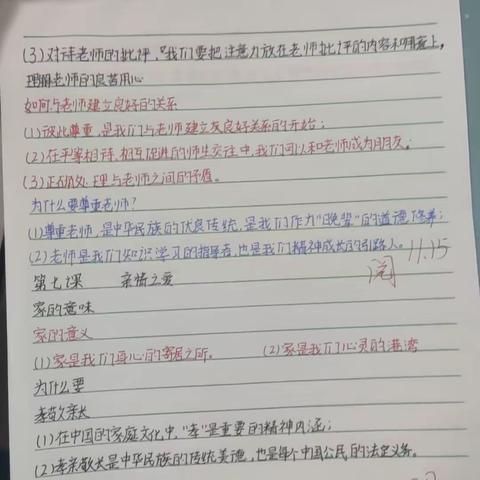 (3)对待老师的批评，我们要把注意力放在老师批评的内容和用意上，
理解老师的良苦用心
如何与老师建立良好的关系
(1)彼此尊重，是我们与老师建立良好关系的开始；
(2)在平等相待、相互促进的师生交往中，我们可以和老师成为朋友。
(3)正确处理与老师之间的矛盾。
为什么要尊重老师？
(1)尊重老师，是中华民族的优良传统，是我们作为“晚辈”的道德修养；
(2)老师是我们知识学习的指导者，也是我们精神成长的引路人。
阅 11.15
第七课 亲情之爱
家的意味
家的意义
(1)家是我们身心的寄居之所。 (2)家是我们心灵的港湾
为什么要
孝敬亲长
(1)在中国的家庭文化中，“孝”是重要的精神内涵；
(2)孝亲敬长是中华民族的传统美德，也是每个中国公民的法定义务。